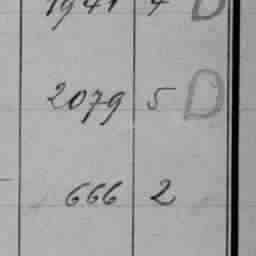 1941 4 D
2079 5 D
666 2